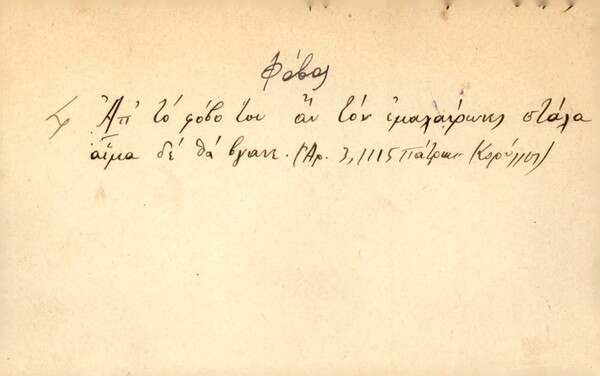 Φόβος
Ἀπ' τό φόβο του ἄν τόν ἐμαχαίρωνες στάλα
αἷμα δέ θά βγανε. (Ἀρ. 3,1115 Πάτραι (Κορύλλος)